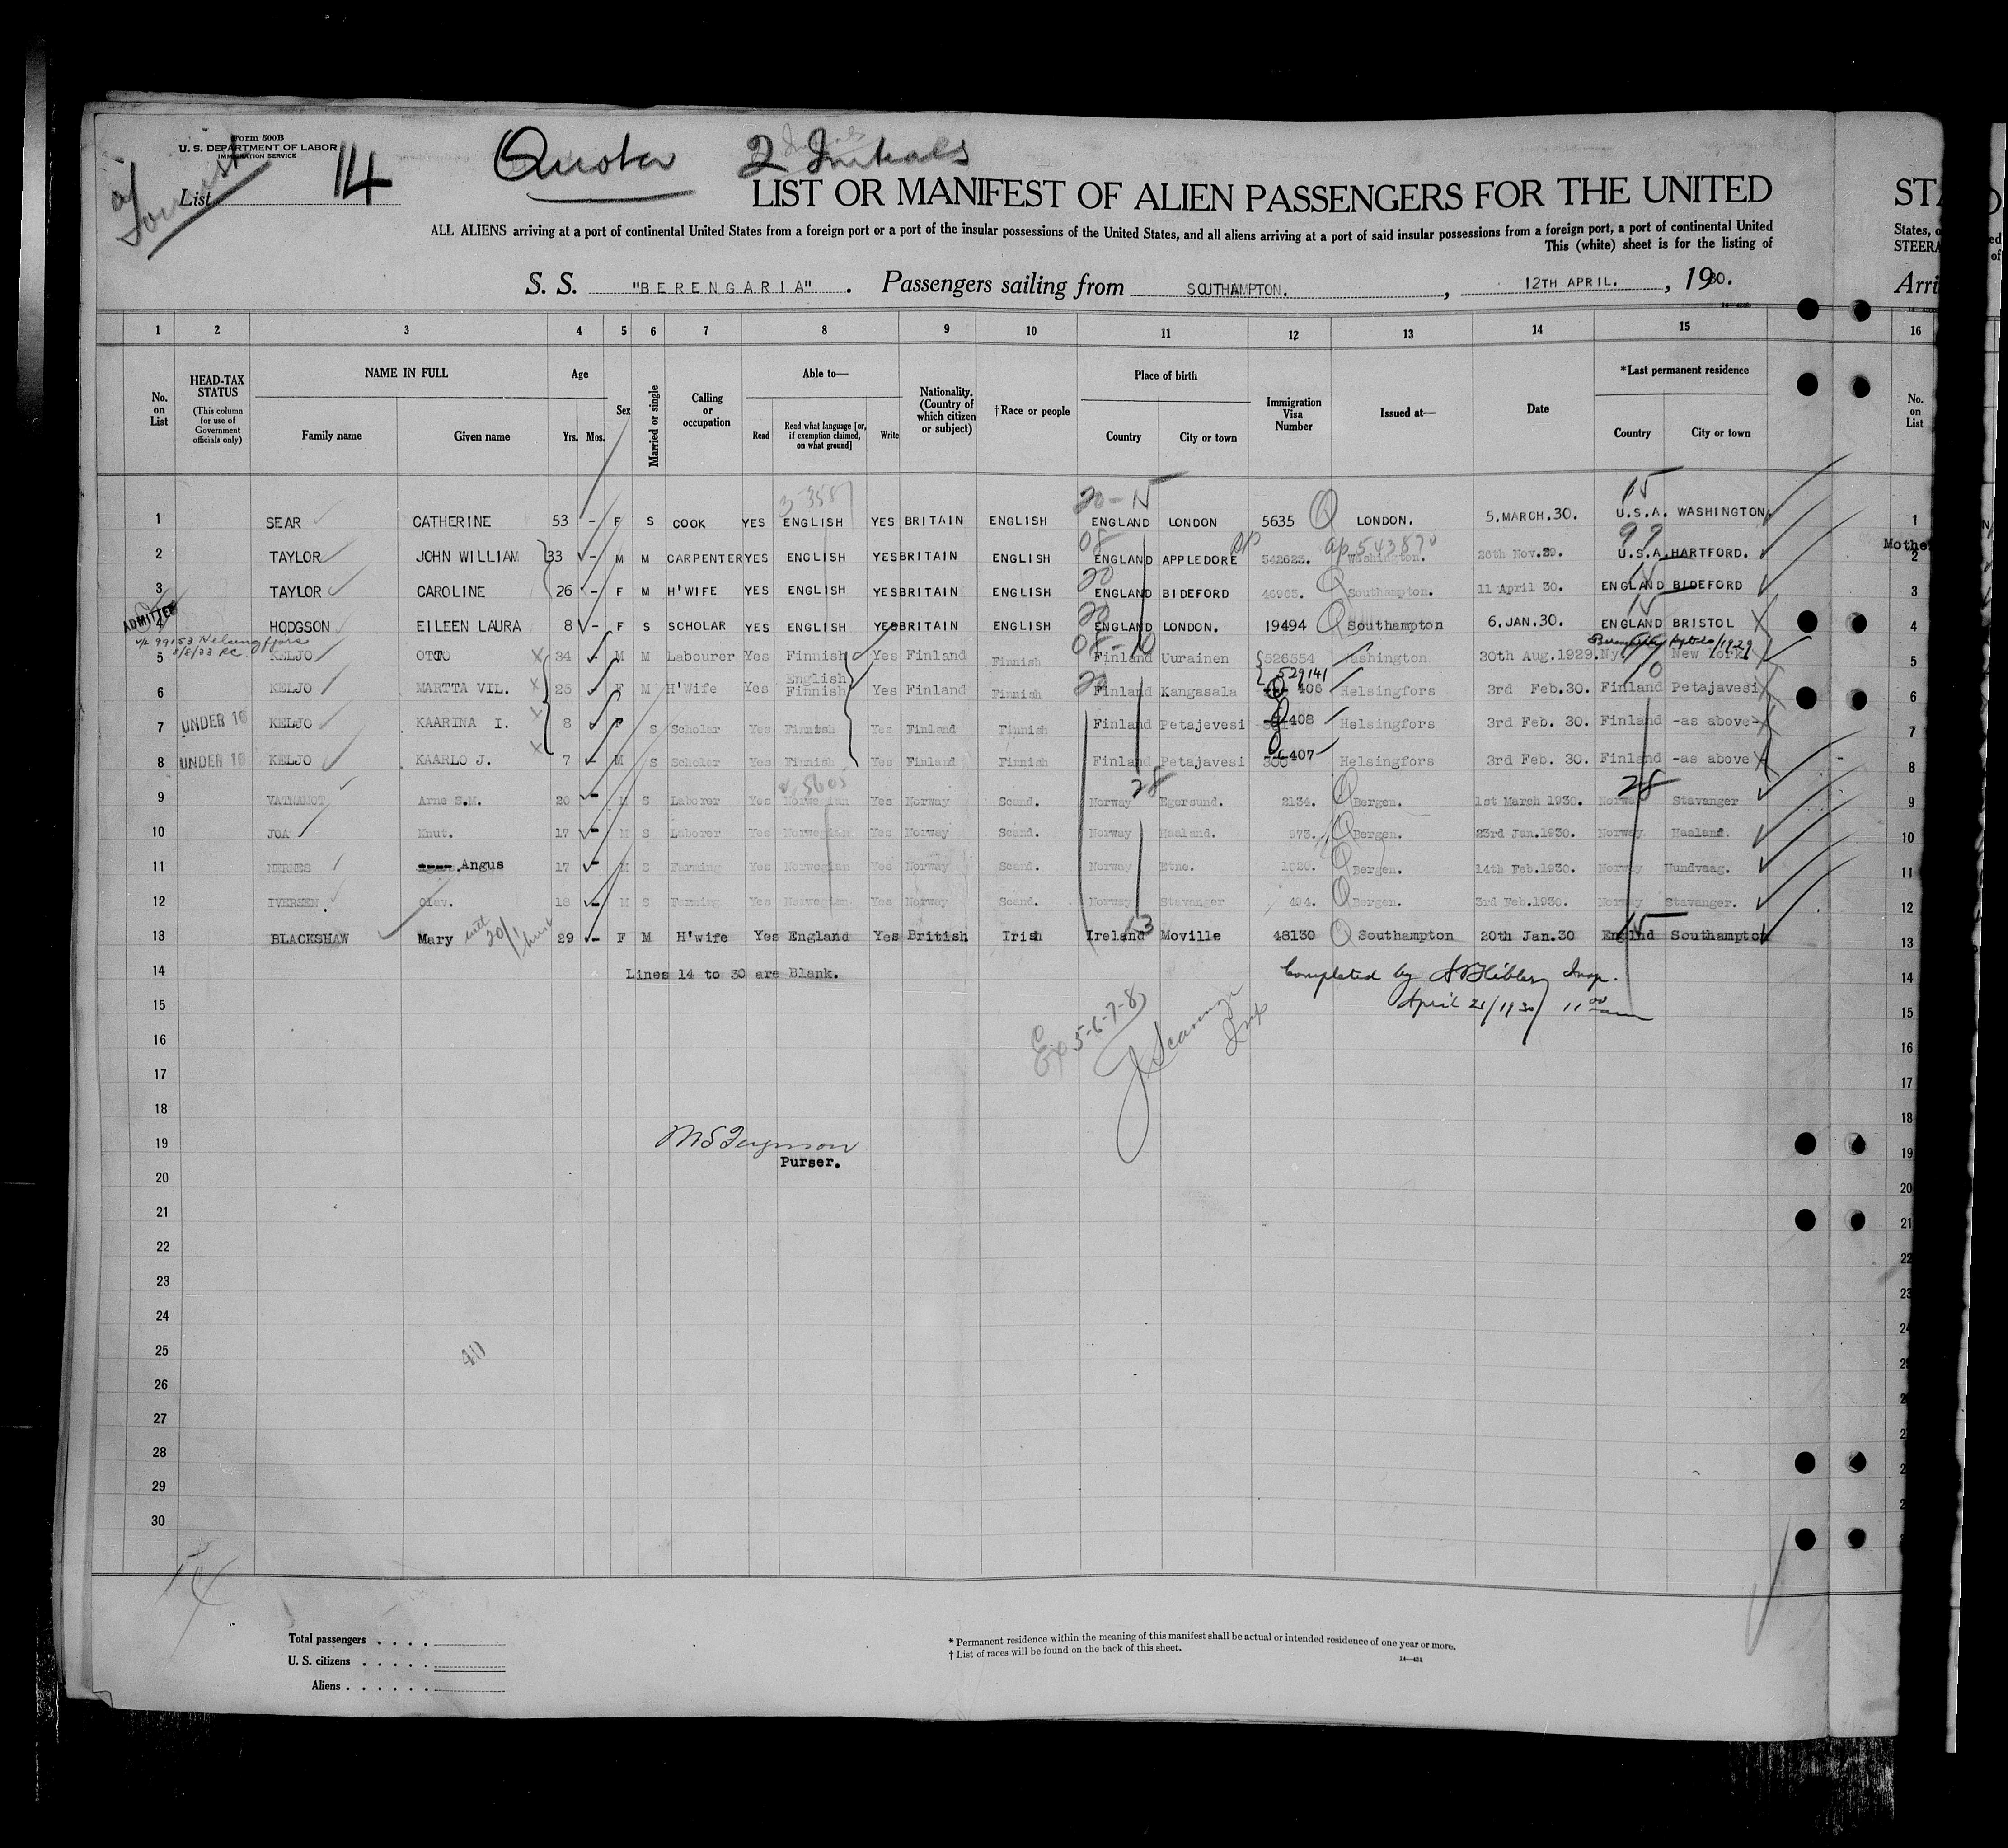 Form 500B
U. S. DEPARTMENT OF LABOR
IMMIGRATION SERVICE
List 14
Quota 2 Initials
LIST OR MANIFEST OF ALIEN PASSENGERS FOR THE UNITED
STA
ALL ALIENS arriving at a port of continental United States from a foreign port or a port of the insular possessions of the United States, and all aliens arriving at a port of said insular possessions from a foreign port, a port of continental United
States, o
This (white) sheet is for the listing of
STEERA
S. S. "BERENGARIA" . Passengers sailing from SOUTHAMPTON. , 12TH APRIL. , 1930.
Arri
1 2 3 4 5 6 7 8 9 10 11 12 13 14 15 16
No. on List
HEAD-TAX STATUS
(This column for use of Government officials only)
NAME IN FULL
Family name Given name
Age
Yrs. Mos.
Sex
Married or single
Calling or occupation
Able to—
Read
Read what language [or, if exemption claimed, on what ground]
Write
Nationality. (Country of which citizen or subject)
†Race or people
Place of birth
Country City or town
Immigration Visa Number
Issued at—
Date
*Last permanent residence
Country City or town
No. on List
3-3587 20-15 15
1 SEAR CATHERINE 53 - F S COOK YES ENGLISH YES BRITAIN ENGLISH ENGLAND LONDON 5635 Q LONDON. 5.MARCH.30. U.S.A. WASHINGTON. 1
08 ap 543870 99
2 TAYLOR JOHN WILLIAM 33 - M M CARPENTER YES ENGLISH YES BRITAIN ENGLISH ENGLAND APPLEDORE 542623. Washington. 26th Nov.29. U.S.A. HARTFORD. 2
Mothe
20 15
3 TAYLOR CAROLINE 26 - F M H'WIFE YES ENGLISH YES BRITAIN ENGLISH ENGLAND BIDEFORD 46965. Q Southampton. 11 April 30. ENGLAND BIDEFORD 3
ADMITTED
20 15
4 HODGSON EILEEN LAURA 8 - F S SCHOLAR YES ENGLISH YES BRITAIN ENGLISH ENGLAND LONDON. 19494 Q Southampton 6.JAN.30. ENGLAND BRISTOL 4
V/L 99153 Helsingfors
5/8/33 RC
08-10 99
5 KELJO OTTO 34 - M M Labourer Yes Finnish Yes Finland Finnish Finland Uurainen 526554 Washington 30th Aug.1929. Ny New York 5
English 529141
6 KELJO MARTTA VIL. 25 - F M H'Wife Yes Finnish Yes Finland Finnish Finland Kangasala 406 Helsingfors 3rd Feb.30. Finland Petajavesi 6
7 UNDER 16 KELJO KAARINA I. 8 - F S Scholar Yes Finnish Yes Finland Finnish Finland Petajevesi 408 Helsingfors 3rd Feb. 30. Finland -as above- 7
8 UNDER 16 KELJO KAARLO J. 7 - M S Scholar Yes Finnish Yes Finland Finnish Finland Petajavesi 407 Helsingfors 3rd Feb. 30. Finland -as above 8
5605 28 28
9 VATNAMOT Arne S.M. 20 - M S Laborer Yes Norwegian Yes Norway Scand. Norway Egersund. 2134. Q Bergen. 1st March 1930. Norway Stavanger 9
10 JOA Knut. 17 - M S Laborer Yes Norwegian Yes Norway Scand. Norway Haaland. 973. Q Bergen. 23rd Jan.1930. Norway Haaland. 10
11 Angus 17 - M S Farming Yes Norwegian Yes Norway Scand. Norway Etne. 1020. Q Bergen. 14th Feb.1930. Norway Hundvaag. 11
12 IVERSEN. Olav. 18 - M S Farming Yes Norwegian Yes Norway Scand. Norway Stavanger 494. Q Bergen. 3rd Feb.1930. Norway Stavanger. 12
13 15
13 BLACKSHAW Mary 29 - F M H'wife Yes England Yes British Irish Ireland Moville 48130 Q Southampton 20th Jan.30 Englnd Southampton 13
14 Lines 14 to 30 are Blank. Completed by Insp. 14
15 April 21/1930 11 00 am 15
16 Ex 5-6-7-8 16
17 17
18 18
19 19
Purser.
20 20
21 21
22 22
23 23
24 24
25
26
27
28
29
30
Total passengers . . . .
U. S. citizens . . . . .
Aliens . . . . . .
* Permanent residence within the meaning of this manifest shall be actual or intended residence of one year or more.
† List of races will be found on the back of this sheet.
14—431